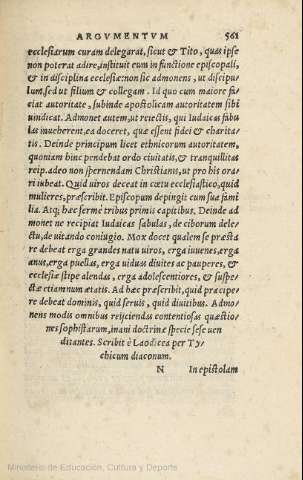 ARGVMENTVM 561
ecclesiarum curam delegarat, sicut & Tito, quas ipse
non poterat adire, instituit eum in functione episcopali,
& in disciplina ecclesiæ: non sic admonens, ut discipu-
lum, sed ut filium & collegam. Id quo cum maiore fa-
ciat autoritate, subinde apostolicam autoritatem sibi
uindicat. Admonet autem, ut reiectis, qui Iudaicas fabu
las inueherent, ea doceret, quæ essent fidei & charita-
tis. Deinde principum licet ethnicorum autoritatem,
quoniam hinc pendebat ordo ciuitatis, & tranquillitas
reip. adeo non spernendam Christianis, ut pro his ora-
ri iubeat. Quid uiros deceat in cœtu ecclesiastico, quid
mulieres, præscribit. Episcopum depingit cum sua fami
lia. Atq; hæc fermè tribus primis capitibus. Deinde ad
monet ne recipiat Iudaicas fabulas, de ciborum dele-
ctu, de uitando coniugio. Mox docet qualem se præsta
re debeat erga grandes natu uiros, erga iuuenes, erga
anus, erga puellas, erga uiduas diuites ac pauperes, &
ecclesiæ stipe alendas, erga adolescentiores, & suspe-
ctæ etiamnum ætatis. Ad hæc præscribit, quid præcipe
re debeat dominis, quid seruis, quid diuitibus. Admo-
nens modis omnibus reijciendas contentiosas quæstio-
nes sophistarum, inani doctrinæ specie sese uen
ditantes. Scribit è Laodicea per Ty-
chicum diaconum.
N In epistolam
Ministerio de Educación, Cultura y Deporte